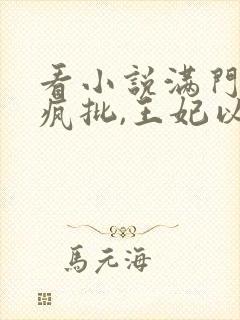 看小說滿門
瘋批,王妃以
馬元海